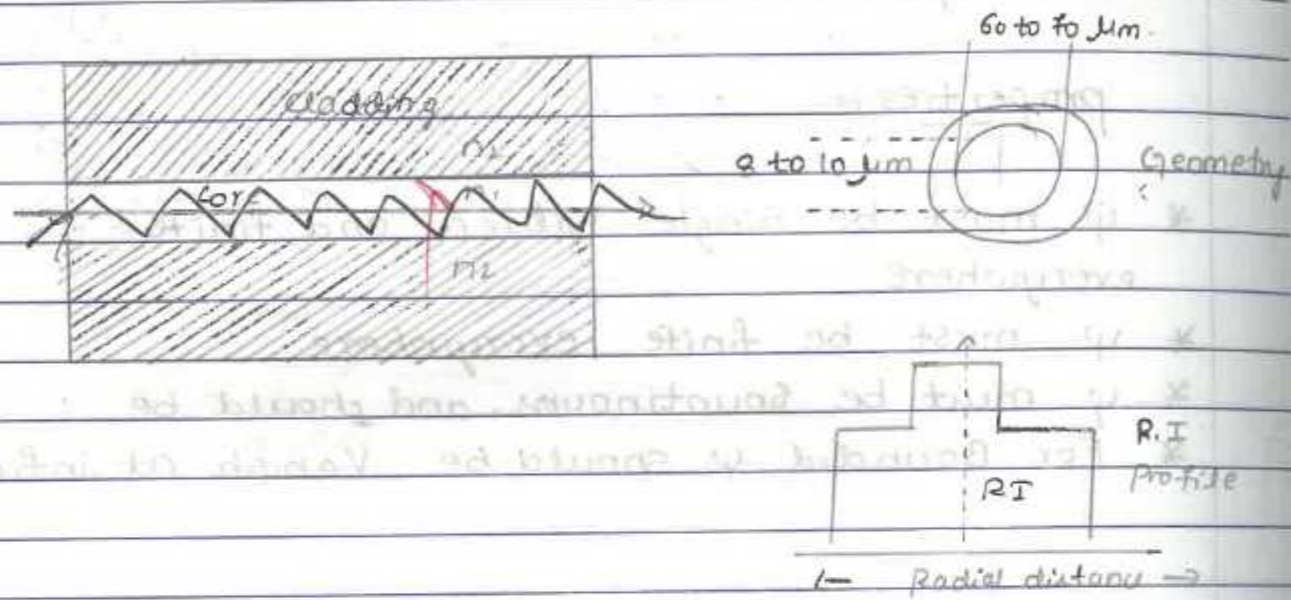 60 to 70 μm.
cladding
n2
8 to 10 μm
Geometry
Cor
n1
n2
R.I
Profile
RI
Radial distance